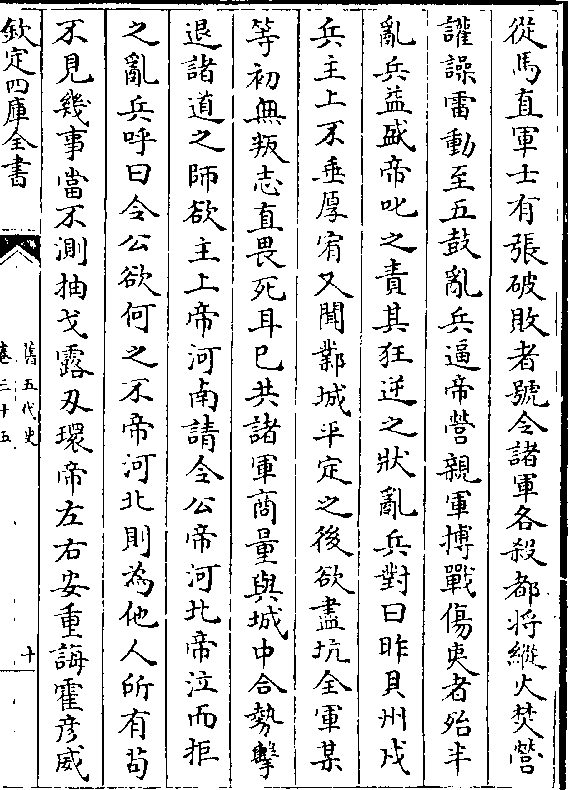 從馬直軍士有張破敗者號令諸軍各殺都将縱火焚營
讙譟雷動至五鼓亂兵逼帝營親軍搏戰傷夷者殆半
亂兵益盛帝叱之責其狂逆之狀亂兵對曰昨貝州戍
兵主上不垂厚宥又聞鄴城平定之後欲盡坑全軍某
等初無叛志直畏死耳已共諸軍商量與城中合勢擊
退諸道之師欲主上帝河南請令公帝河北帝泣而拒
之亂兵呼曰令公欲何之不帝河北則為他人所有苟
不見幾事當不測抽戈露刃環帝左右安重誨霍彦威
欽定四庫全書
舊五代史
卷三十五
十